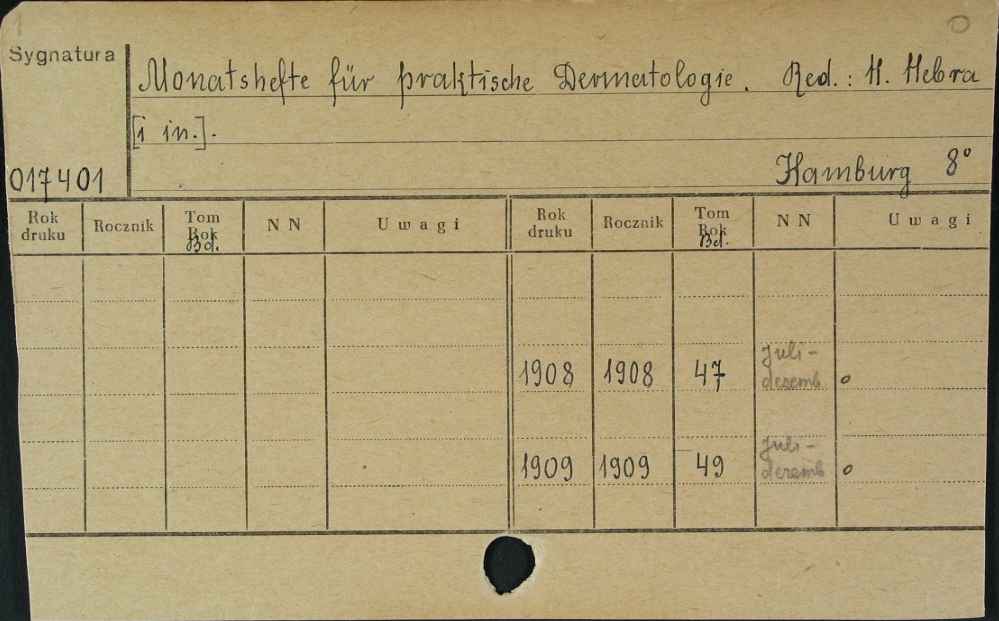 Sygnatura
Monatshefte für praktische Dermatologie. Red.: H. Hebra
[i in.].
017401
Hamburg 8°
Rok druku Rocznik Tom Rok Bd. N N Uwagi Rok druku Rocznik Tom Rok Bd. N N Uwagi
1908 1908 47 Juli-
desemb
1909 1909 49 Juli-
desemb